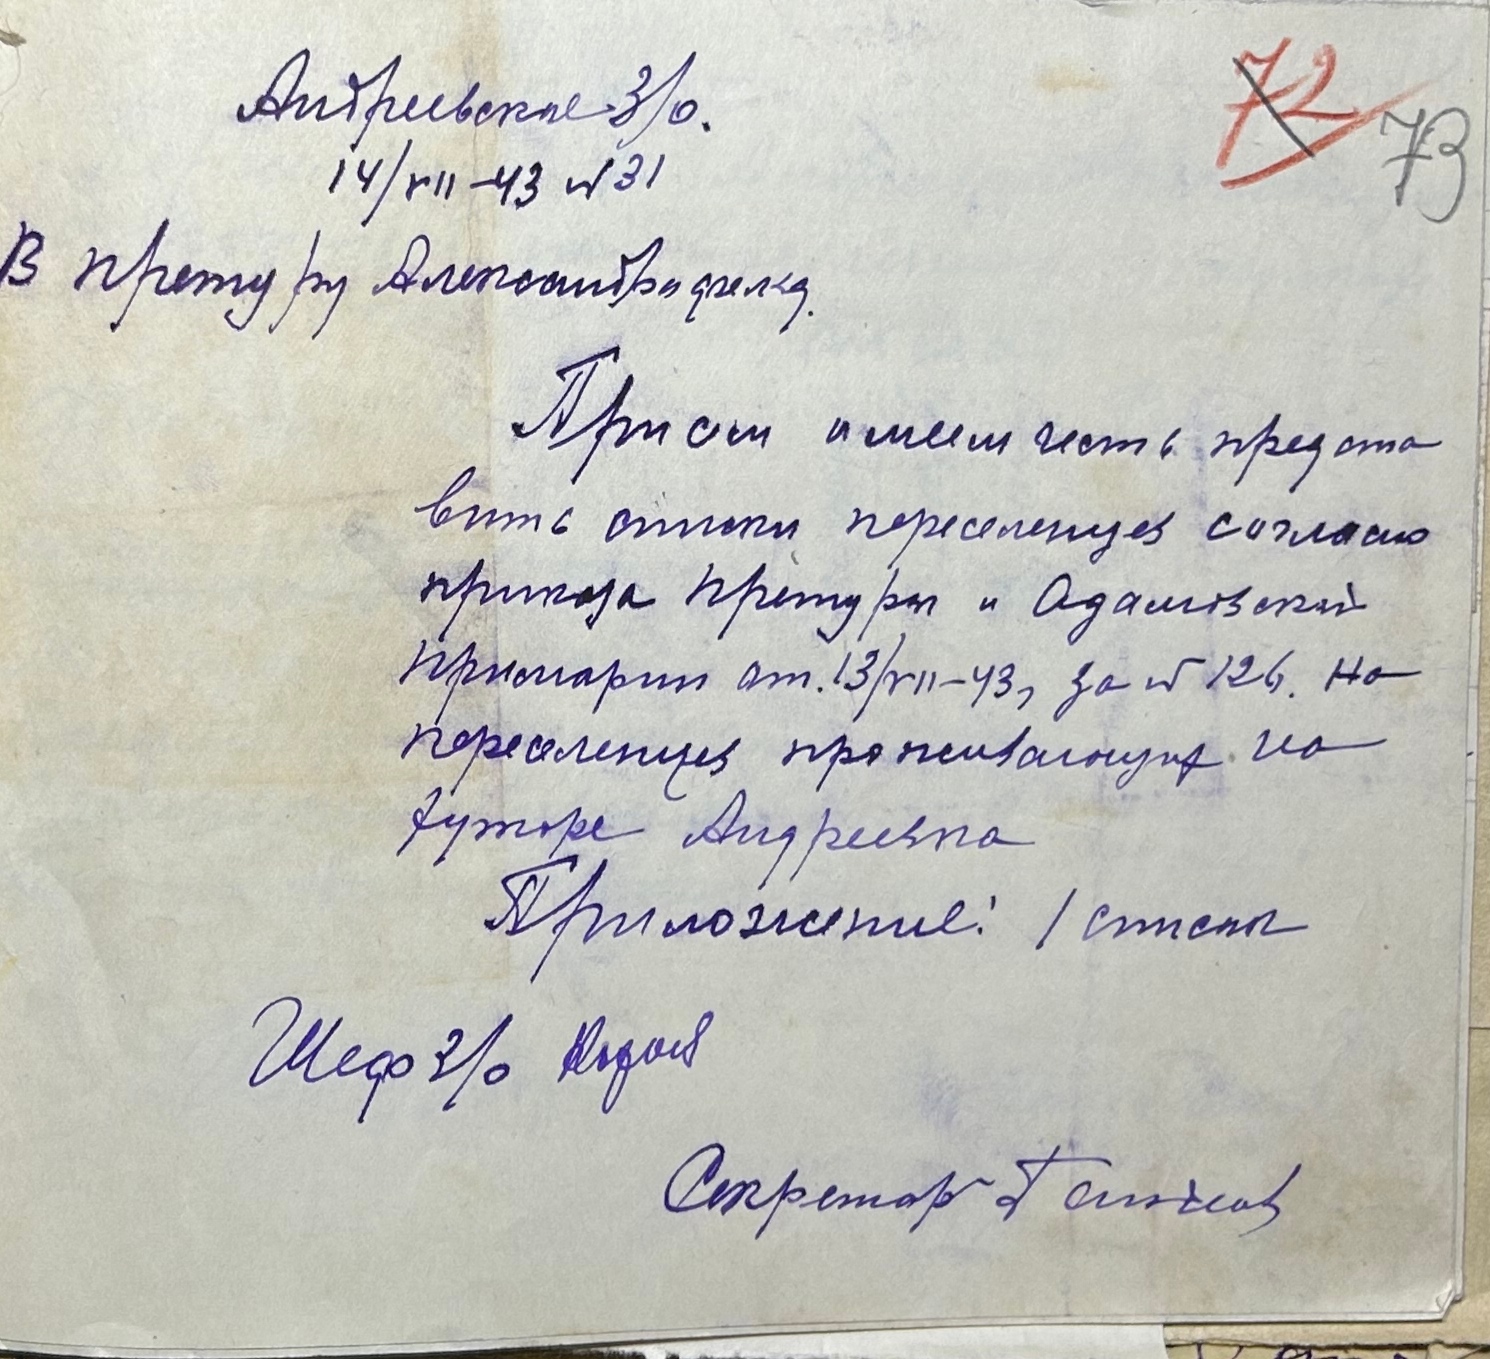 72 73
Андреевское З/о.
14/VII-43 № 31
В претуру Александрфельд.
При сем имеем честь предста
вить списки переселенцев согласно
приказа Претуры и Адамовской
Примарии от. 13/VII-43, за № 126. На
переселенцев проживающих на
хуторе Андреевка
Приложение: 1 список
Шеф З/о
Секретарь